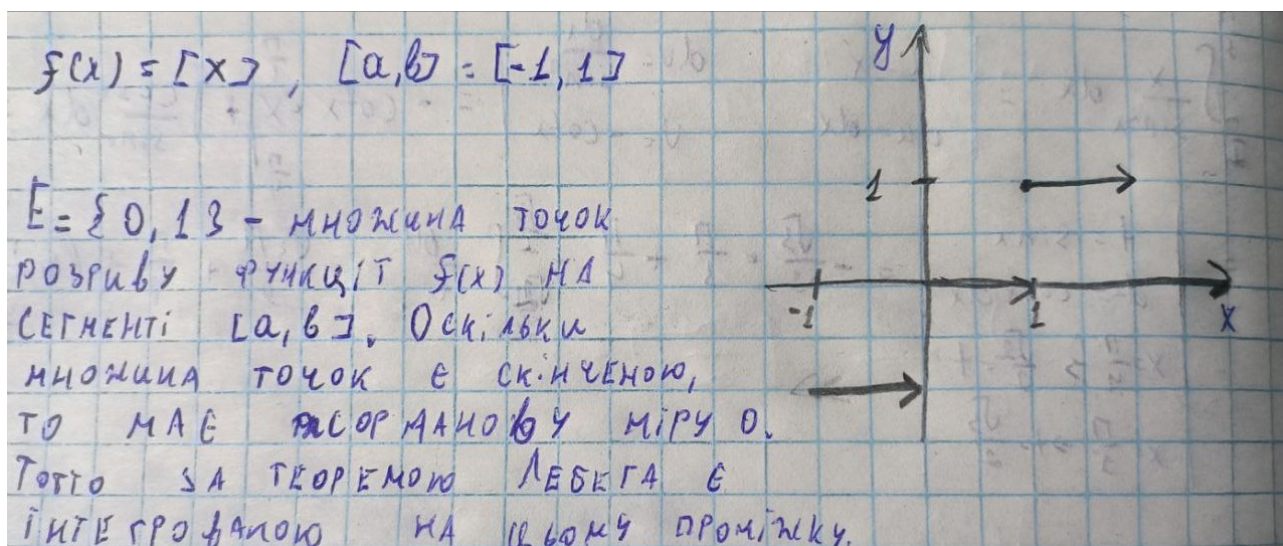 f(x) = [x], [a,b] = [-1, 1]
E = {0, 1} - множина точок
розриву функції f(x) на
сегменті [a, b]. Оскільки
множина точок є скінченою,
то має жорданову міру 0.
Тобто за теоремою Лебега є
інтегрованою на цьому проміжку.
y
1
-1
1
x